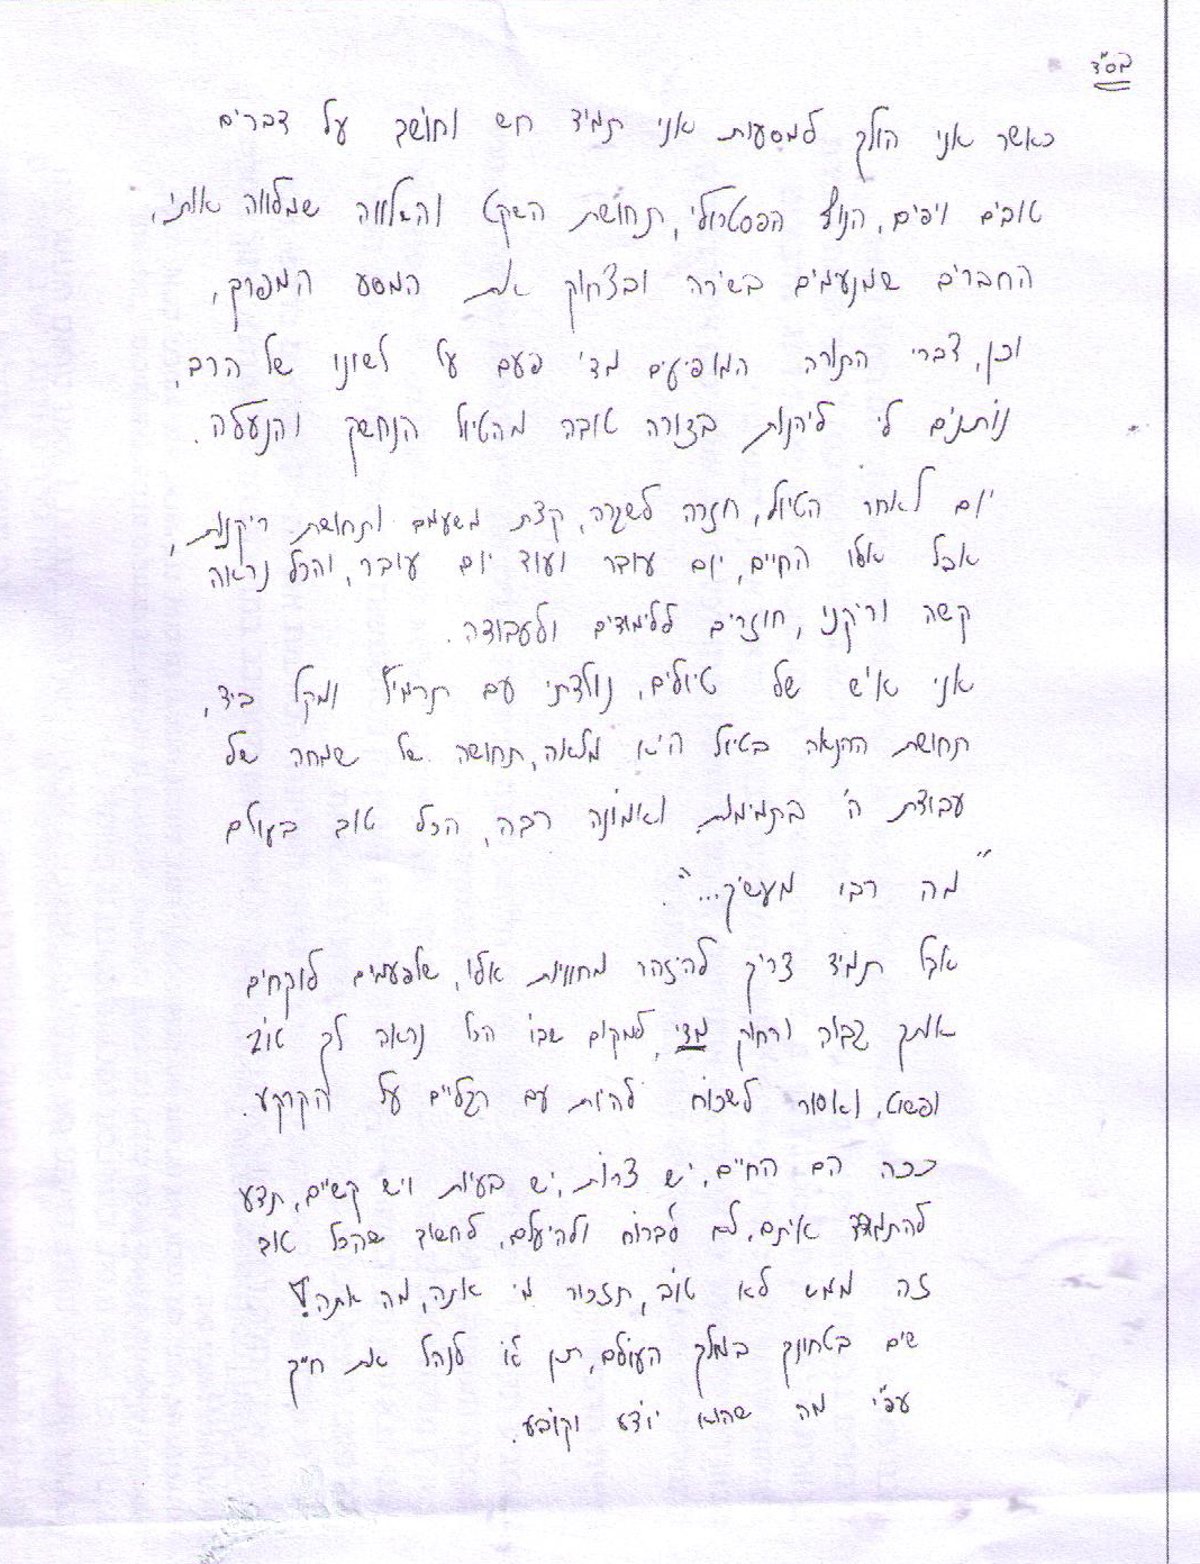 בס"ד
כאשר אני הולך למסעות אני תמיד חש וחושב על דברים
טובים ויפים, הנוף הפסטורלי, תחושת השקט והשלווה שמלווה אותי,
החברים שמנעימים בשירה ובצחוק את המסע המפרך,
וכן, דברי התורה המופיעים מדי פעם על לשונו של הרב,
נותנים לי ליהנות בצורה טובה מהטיול הנחשק והנעלה.
יום לאחר הטיול, חזרה לשגרה, קצת משעמם ותחושת ריקנות,
אבל אלו החיים, יום עובר ועוד יום עובר, והכל נראה
קשה וריקני, חוזרים ללימודים ולעבודה.
אני איש של טיולים, נולדתי עם תרמיל ומקל ביד,
תחושת ההנאה בטיול היא מלאה, תחושה של שמחה של
עבודת ה' בתמימות ואמונה רבה, הכל טוב בעולם
"מה רבו מעשיך...".
אבל תמיד צריך להיזהר מחוויות אלו, שלפעמים לוקחים
אותך גבוה ורחוק מדי, למקום שבו הכל נראה לך טוב
ופשוט, ואסור לשכוח להיות עם רגליים על הקרקע.
ככה הם החיים, יש צרות, יש בעיות ויש קשיים, תדע
להתמודד איתם, לא לברוח ולהיעלם, לחשוב שהכל טוב
זה ממש לא טוב, תזכור מי אתה, מה אתה!
שים בטחונך במלך העולם, תן לו לנהל את חייך
עפ"י מה שהוא יודע וקובע.